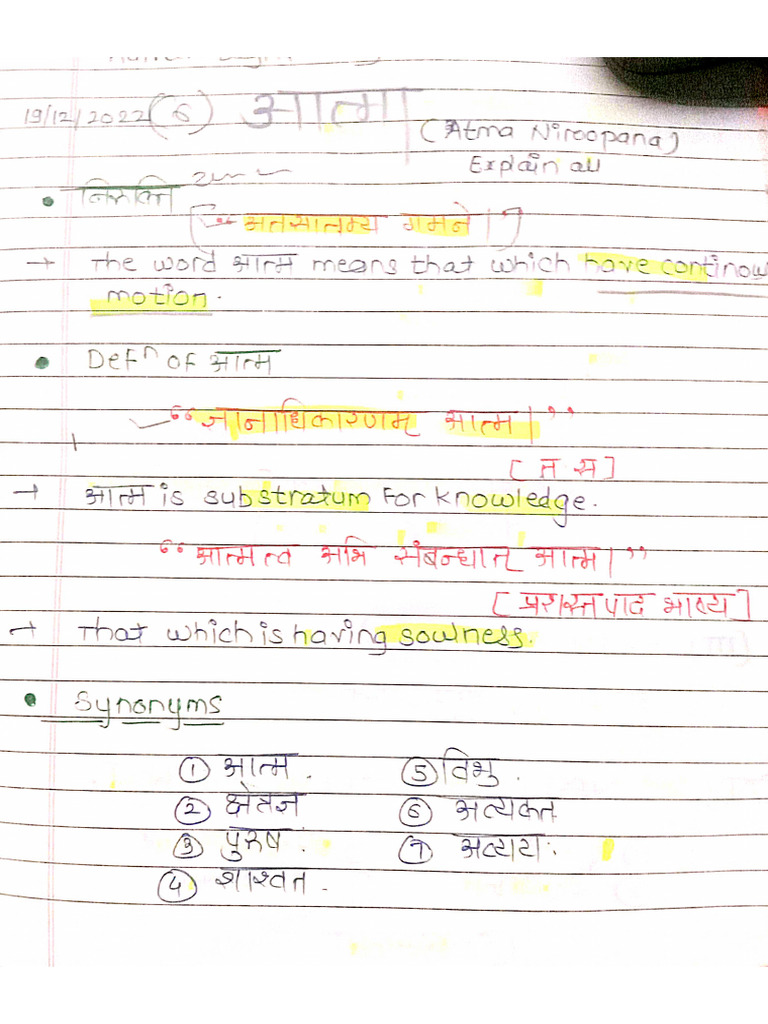 19/12/2022 (6) आत्मा
(Atma Niroopana)
Explain all
• निरुक्ति
"अतसातम्य गमने।"
→ The word आत्म means that which have continow
motion.
• Defⁿ of आत्म
"ज्ञानाधिकारणम् आत्म।"
[त स]
→ आत्म is substratum for knowledge.
"आत्मत्व अभि संबन्धात् आत्म।"
[प्रशस्तपाद भाष्य]
→ That which is having soulness.
• Synonyms
① आत्म. ⑤ विभु.
② क्षेत्रज्ञ ⑥ अव्यक्त
③ पुरुष. ⑦ अव्यय.
④ शाश्वत.